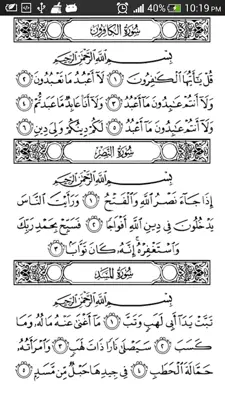 40% 10:19 PM
سُورَةُ الكَافِرُونَ
بِسْمِ ٱللَّهِ ٱلرَّحْمَٰنِ ٱلرَّحِيمِ
قُلْ يَٰٓأَيُّهَا ٱلْكَٰفِرُونَ ١ لَآ أَعْبُدُ مَا تَعْبُدُونَ ٢
وَلَآ أَنتُمْ عَٰبِدُونَ مَآ أَعْبُدُ ٣ وَلَآ أَنَا۠ عَابِدٌ مَّا عَبَدتُّمْ ٤
وَلَآ أَنتُمْ عَٰبِدُونَ مَآ أَعْبُدُ ٥ لَكُمْ دِينُكُمْ وَلِيَ دِينِ ٦
سُورَةُ النَّصْرِ
بِسْمِ ٱللَّهِ ٱلرَّحْمَٰنِ ٱلرَّحِيمِ
إِذَا جَآءَ نَصْرُ ٱللَّهِ وَٱلْفَتْحُ ١ وَرَأَيْتَ ٱلنَّاسَ
يَدْخُلُونَ فِى دِينِ ٱللَّهِ أَفْوَاجًا ٢ فَسَبِّحْ بِحَمْدِ رَبِّكَ
وَٱسْتَغْفِرْهُ إِنَّهُۥ كَانَ تَوَّابًۢا ٣
سُورَةُ المَسَدِ
بِسْمِ ٱللَّهِ ٱلرَّحْمَٰنِ ٱلرَّحِيمِ
تَبَّتْ يَدَآ أَبِى لَهَبٍ وَتَبَّ ١ مَآ أَغْنَىٰ عَنْهُ مَالُهُۥ وَمَا
كَسَبَ ٢ سَيَصْلَىٰ نَارًا ذَاتَ لَهَبٍ ٣ وَٱمْرَأَتُهُۥ
حَمَّالَةَ ٱلْحَطَبِ ٤ فِى جِيدِهَا حَبْلٌ مِّن مَّسَدٍۭ ٥